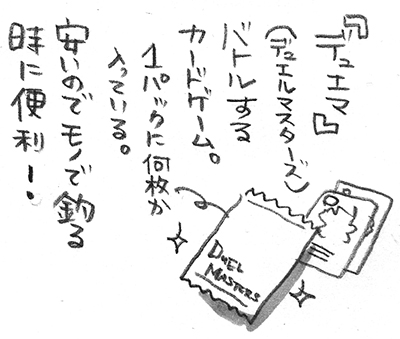 『デュエマ』
(デュエルマスターズ)
バトルする
カードゲーム。
1パックに何枚か
入っている。
安いのでモノで釣る
時に便利！
DUEL
MASTERS